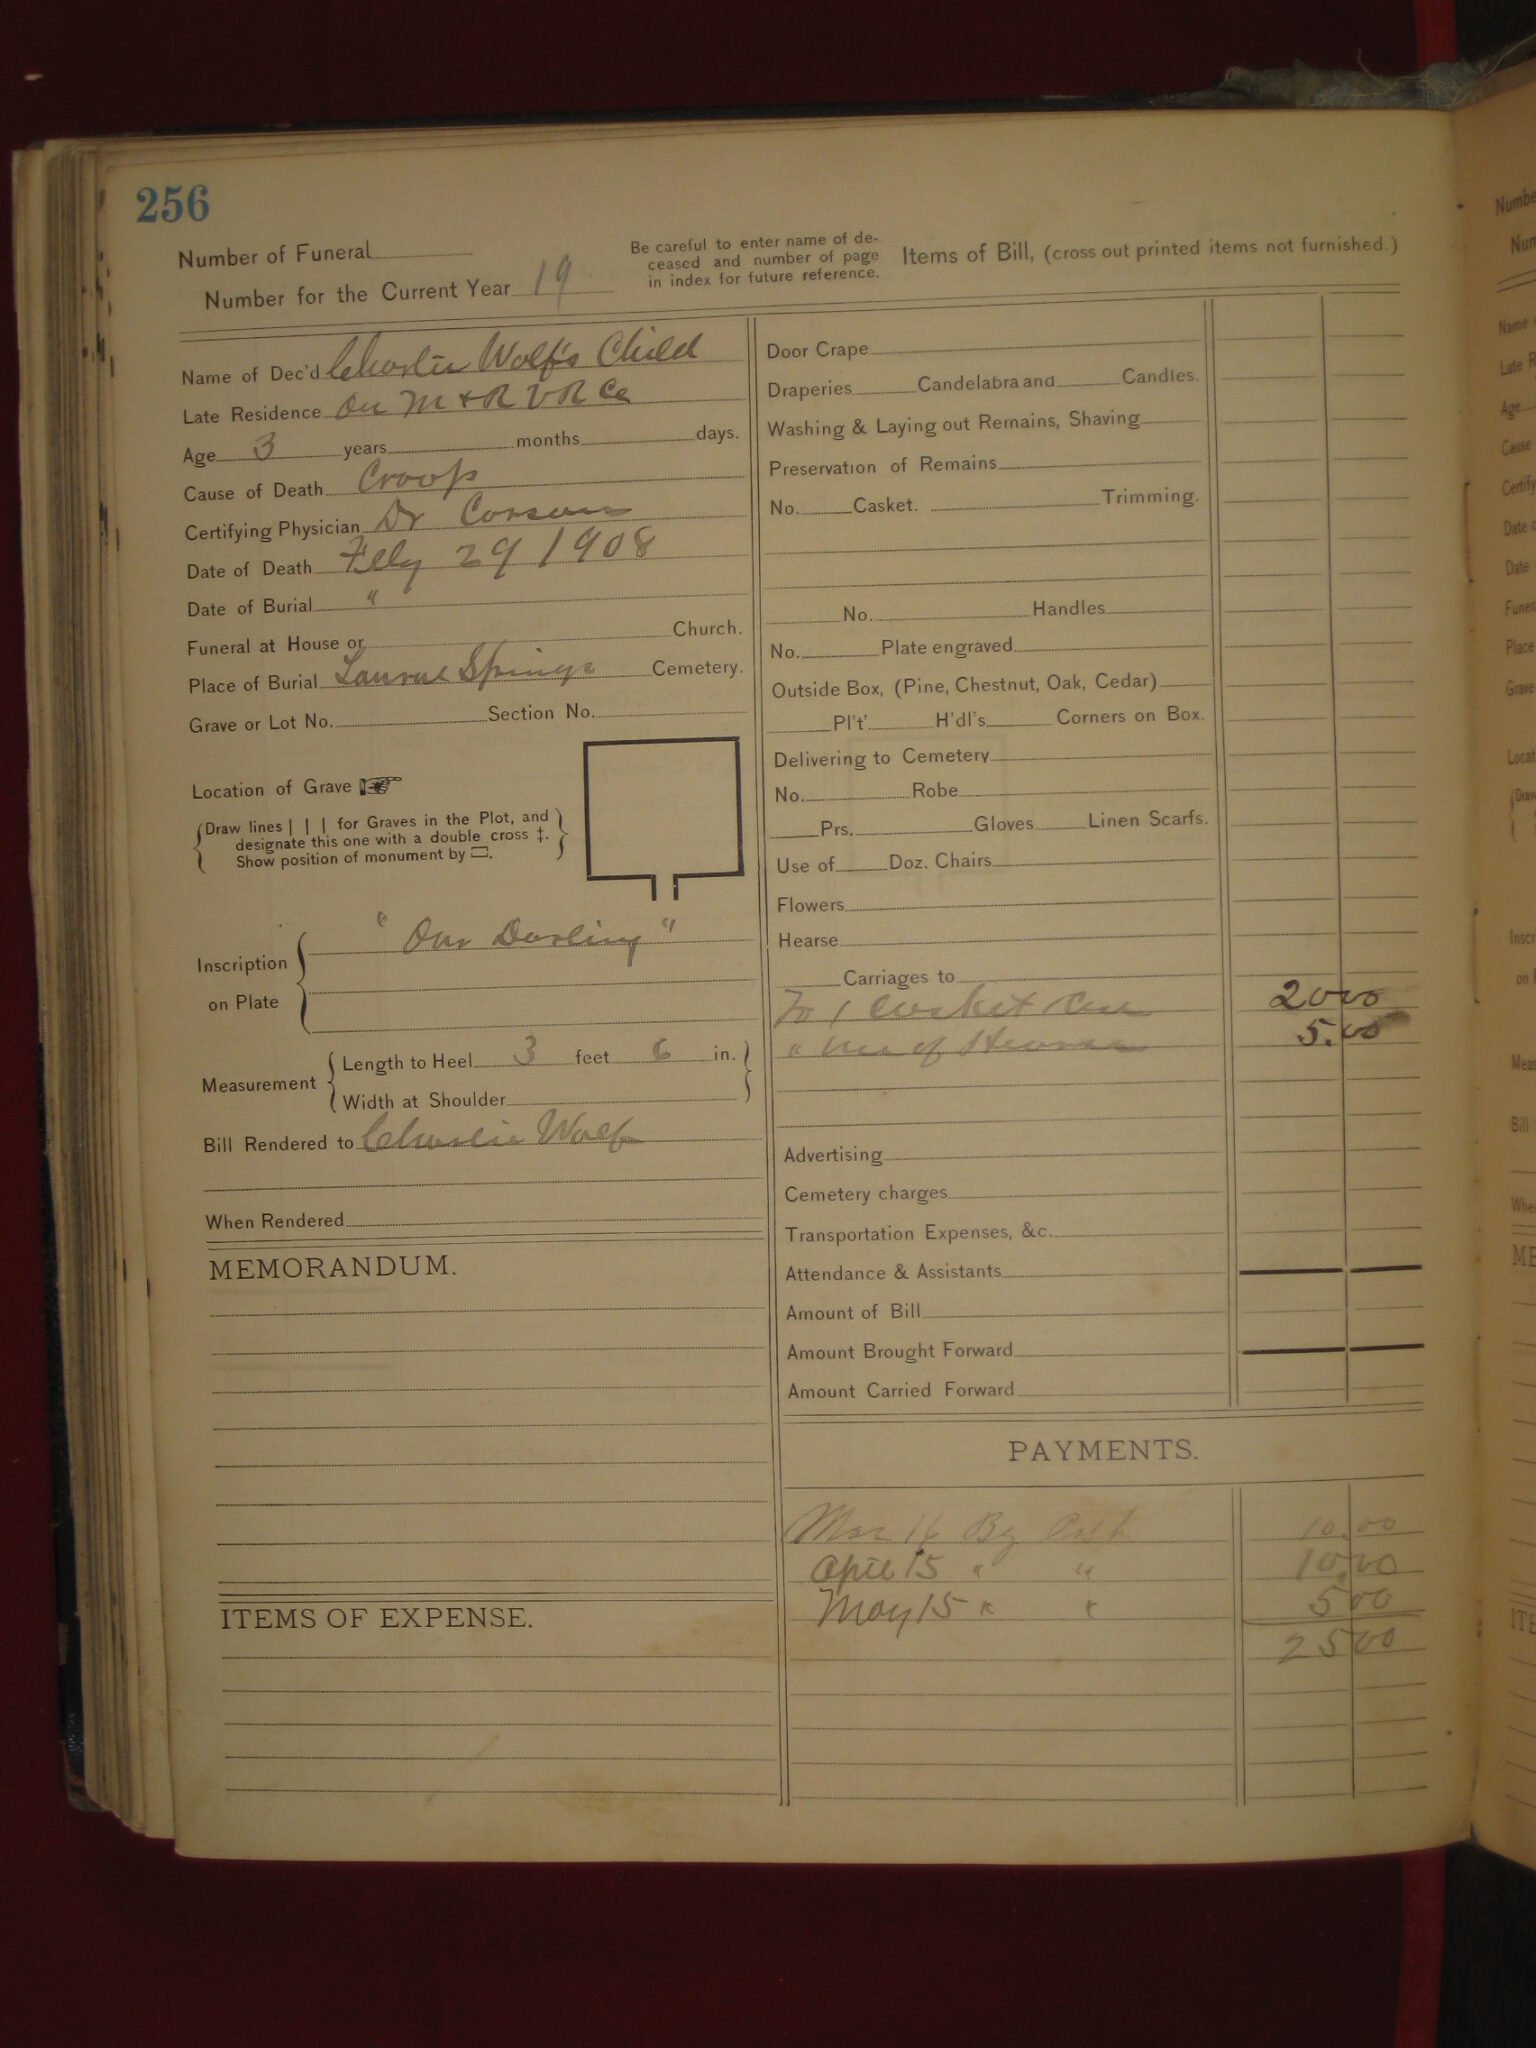 256
Number of Funeral
Number for the Current Year 19
Be careful to enter name of de-
ceased and number of page
in index for future reference.
Items of Bill, (cross out printed items not furnished.)
Name of Dec'd Charlie Wolf's Child
Late Residence On M & R V R Co
Age 3 years months days.
Cause of Death Croop
Certifying Physician Dr Corson
Date of Death Feby 29 1908
Date of Burial "
Funeral at House or Church.
Place of Burial Laurel Springs Cemetery.
Grave or Lot No. Section No.
Location of Grave
Draw lines | | | for Graves in the Plot, and
designate this one with a double cross ‡.
Show position of monument by ▭.
Inscription
on Plate
" Our Darling "
Measurement
Length to Heel 3 feet 6 in.
Width at Shoulder
Bill Rendered to Charlie Wolf
When Rendered
MEMORANDUM.
ITEMS OF EXPENSE.
Door Crape
Draperies Candelabra and Candles.
Washing & Laying out Remains, Shaving
Preservation of Remains
No. Casket. Trimming.
No. Handles
No. Plate engraved
Outside Box, (Pine, Chestnut, Oak, Cedar)
Pl't' H'dl's Corners on Box.
Delivering to Cemetery
No. Robe
Prs. Gloves Linen Scarfs.
Use of Doz. Chairs
Flowers
Hearse
Carriages to
To 1 Casket 20 00
" use of Hearse 5.00
Advertising
Cemetery charges
Transportation Expenses, &c.
Attendance & Assistants
Amount of Bill
Amount Brought Forward
Amount Carried Forward
PAYMENTS.
Mar 16 By Cash 10.00
April 15 " " 10.00
May 15 " " 5 00
25 00